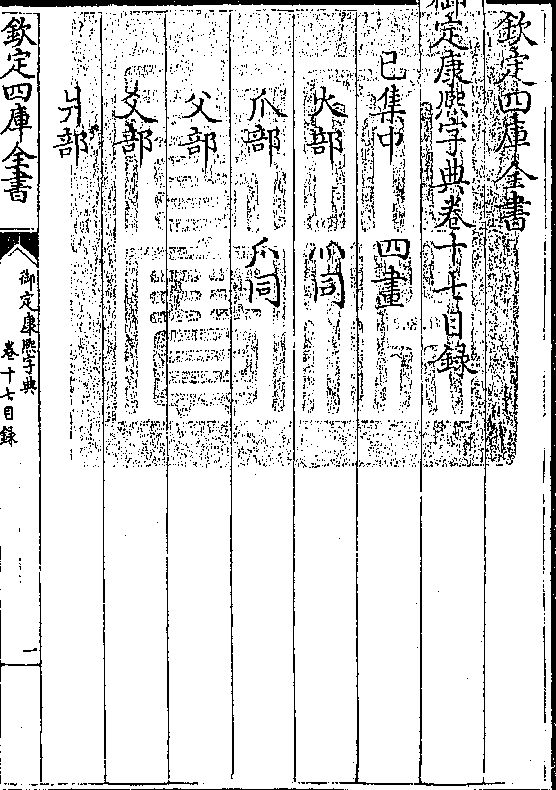 欽定四庫全書
御定康熙字典卷十七目録
巳集中 四畫
火部 灬同
爪部 爫同
父部
爻部
爿部
欽定四庫全書
御定康熙字典
卷十七目録
一